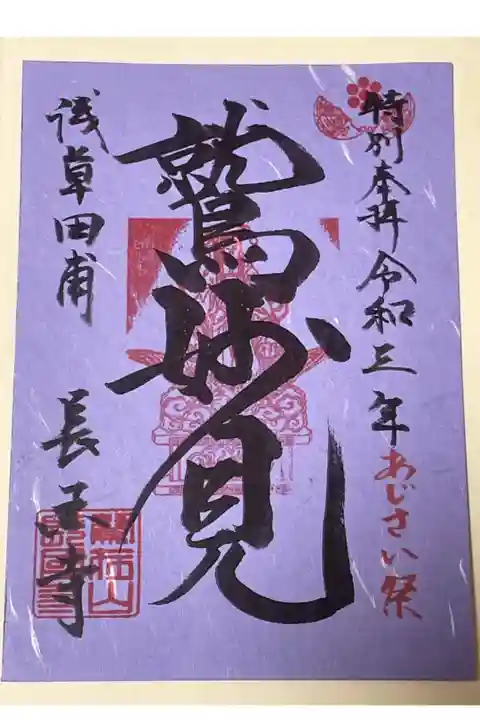 特別奉拝 令和三年 あじさい祭
鷲妙見
浅草田甫 長国寺